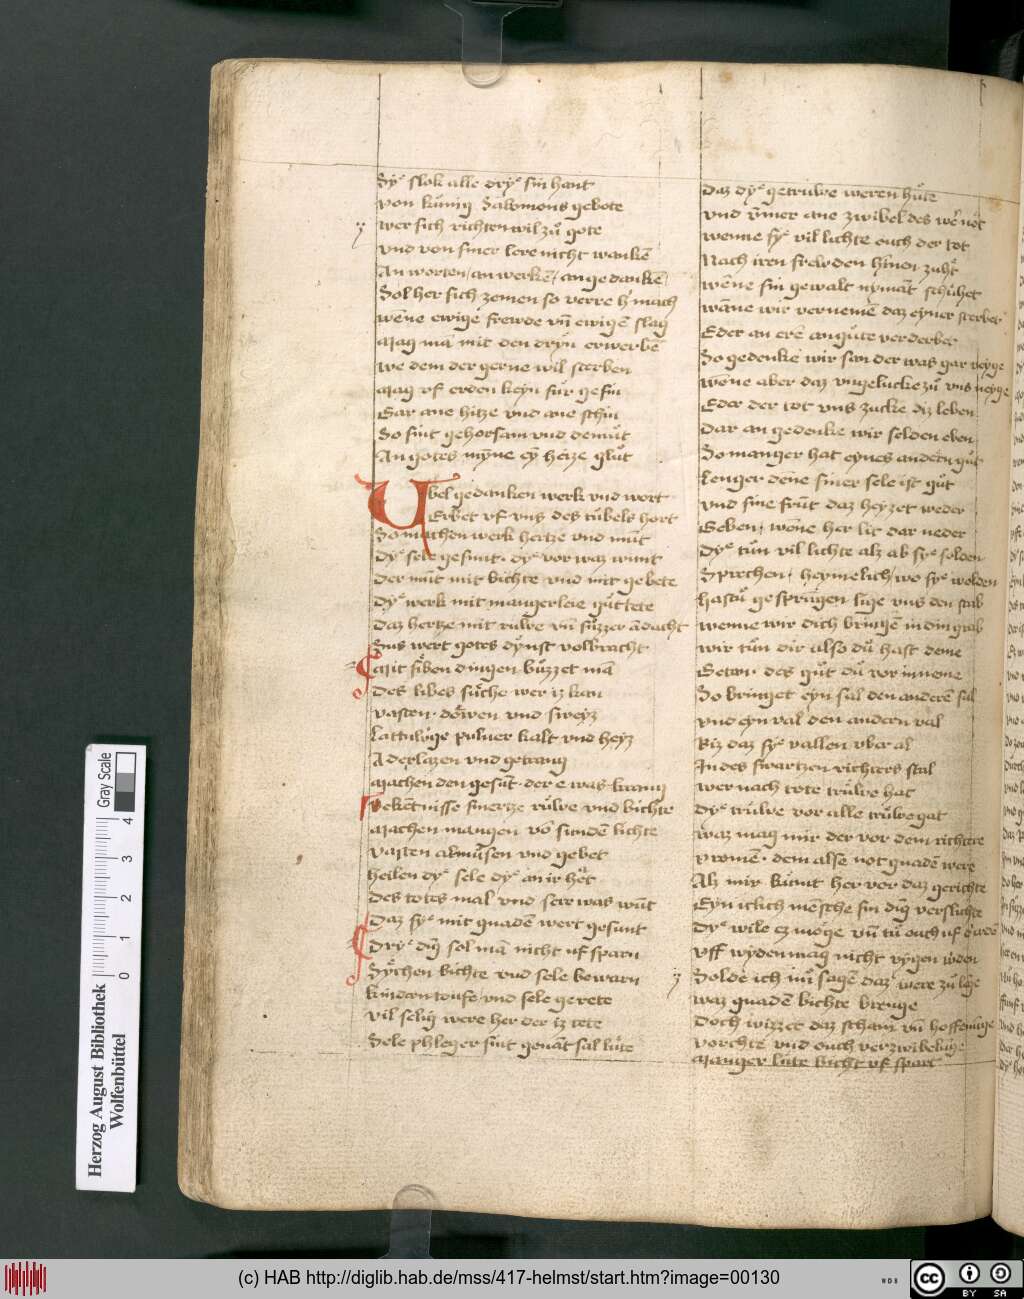 Sy slok alle dry sin hant
von kunig Salomons gebote
wer sich richten wil zu gote
vnd von siner lere nicht wankē
An worten an werkē an gedankē
Sol her sich zemen so verre h mach
wēne ewige frewde vn̄ ewigē slag
Mag mā mit den dryn erwerbē
we dem der gerne wil sterben
Mag vf erden keyn fur gesin
Gar ane hitze vnd ane schin
So sint gehorsam vnd demut
An gotes myne ey heize glut
Ubel gedanken werk vnd wort
Erbet vf vns des tubels hort
So machen werk hertze vnd mūt
dy sele gesunt dy vor waz wunt
der munt mit bichte vnd mit gebete
dy werk mit mangerleie guttete
daz hertze mit ruwe vn̄ suzzer ādacht
Sus wert gotes dynst volbracht
Mit siben dingen buzzet mā
des libes suche wer iz kan
vasten dowen vnd sweyz
Lattuwge puluer kalt vnd heyz
Aderlazen vnd getrang
Machen den gesūt der e was krang
Bekētnisse smertze ruwe vnd bichte
Machen mangen vō sundē lichte
vasten almusen vnd gebet
heilen dy sele dy an ir het
des totes mal vnd sere was wūt
Daz sy mit gnadē wert gesunt
Dry dīg sol mā nicht uf sparn
Sychen bichte vnd sele bewarn
kindern toufe vnd sele gerete
vil selig were her der iz tete
Sele phleger sint genāt sal lute
daz dy getruwe weren hute
vnd ūmer ane zwibel des wē not
wenne sy vil lichte ouch der tot
Nach iren frewden hinen zuht
wēne sin gewalt nymāt schuhet
wāne wir vernemē daz eyner sterbet
Eder an erē an gute verderbet
So gedenkē wir san der was gar veyge
wēne aber daz vngelucke zu vns neyge
Eder der tot vns zucke diz leben
dar an gedenke wir selden eben
So manger hat eynes andern gut
Lenger dēne siner sele ist gut
vnd sine frūt daz heyzet weder
Geben wēne her lit dar neder
dy tun vil lichte alz ab sy solden
Sprechen heymelich wo sy wolden
hastu gesprūgen suge vns den stab
wenne wir dich bringē in din grab
wir tun dir also du hast deme
Getan des gut du vor inneme
So bringet eyn sal den anderē sal
vnd eyn val den andern val
Biz daz sy vallen vber al
In des swartzen richters stal
wer nach tote truwe hat
dy truwe vor alle truwe gat
waz mag mir der vor dem richtere
vromē dem alse not gnadē were
Alz mir kumt her vor daz gerichte
Eyn itlich mēsche sin dīg verslichte
dy wile ez moge vn̄ tu ouch uf gnadē
vff wyden mag nicht vygen werden
Solde ich nu sagē daz were zu lāge
waz gnadē bichte brenge
Doch wizzet daz scham vn̄ hoffenūge
vorchte vnd ouch verzwibelūge
Manger lute bicht vf spart
Herzog August Bibliothek
Wolfenbüttel
Gray Scale
0 1 2 3 4
(c) HAB http://diglib.hab.de/mss/417-helmst/start.htm?image=00130
WDB
cc BY SA